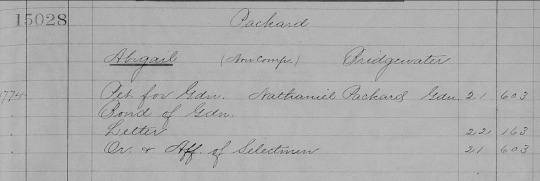 15028 Packard
Abigail (Non Comps.) Bridgewater
1774 Pet. for Gdn. Nathaniel Packard Gdn. 21 603
Bond of Gdn.
Letter 22 163
Or. & Aff. of Selectmen 21 603